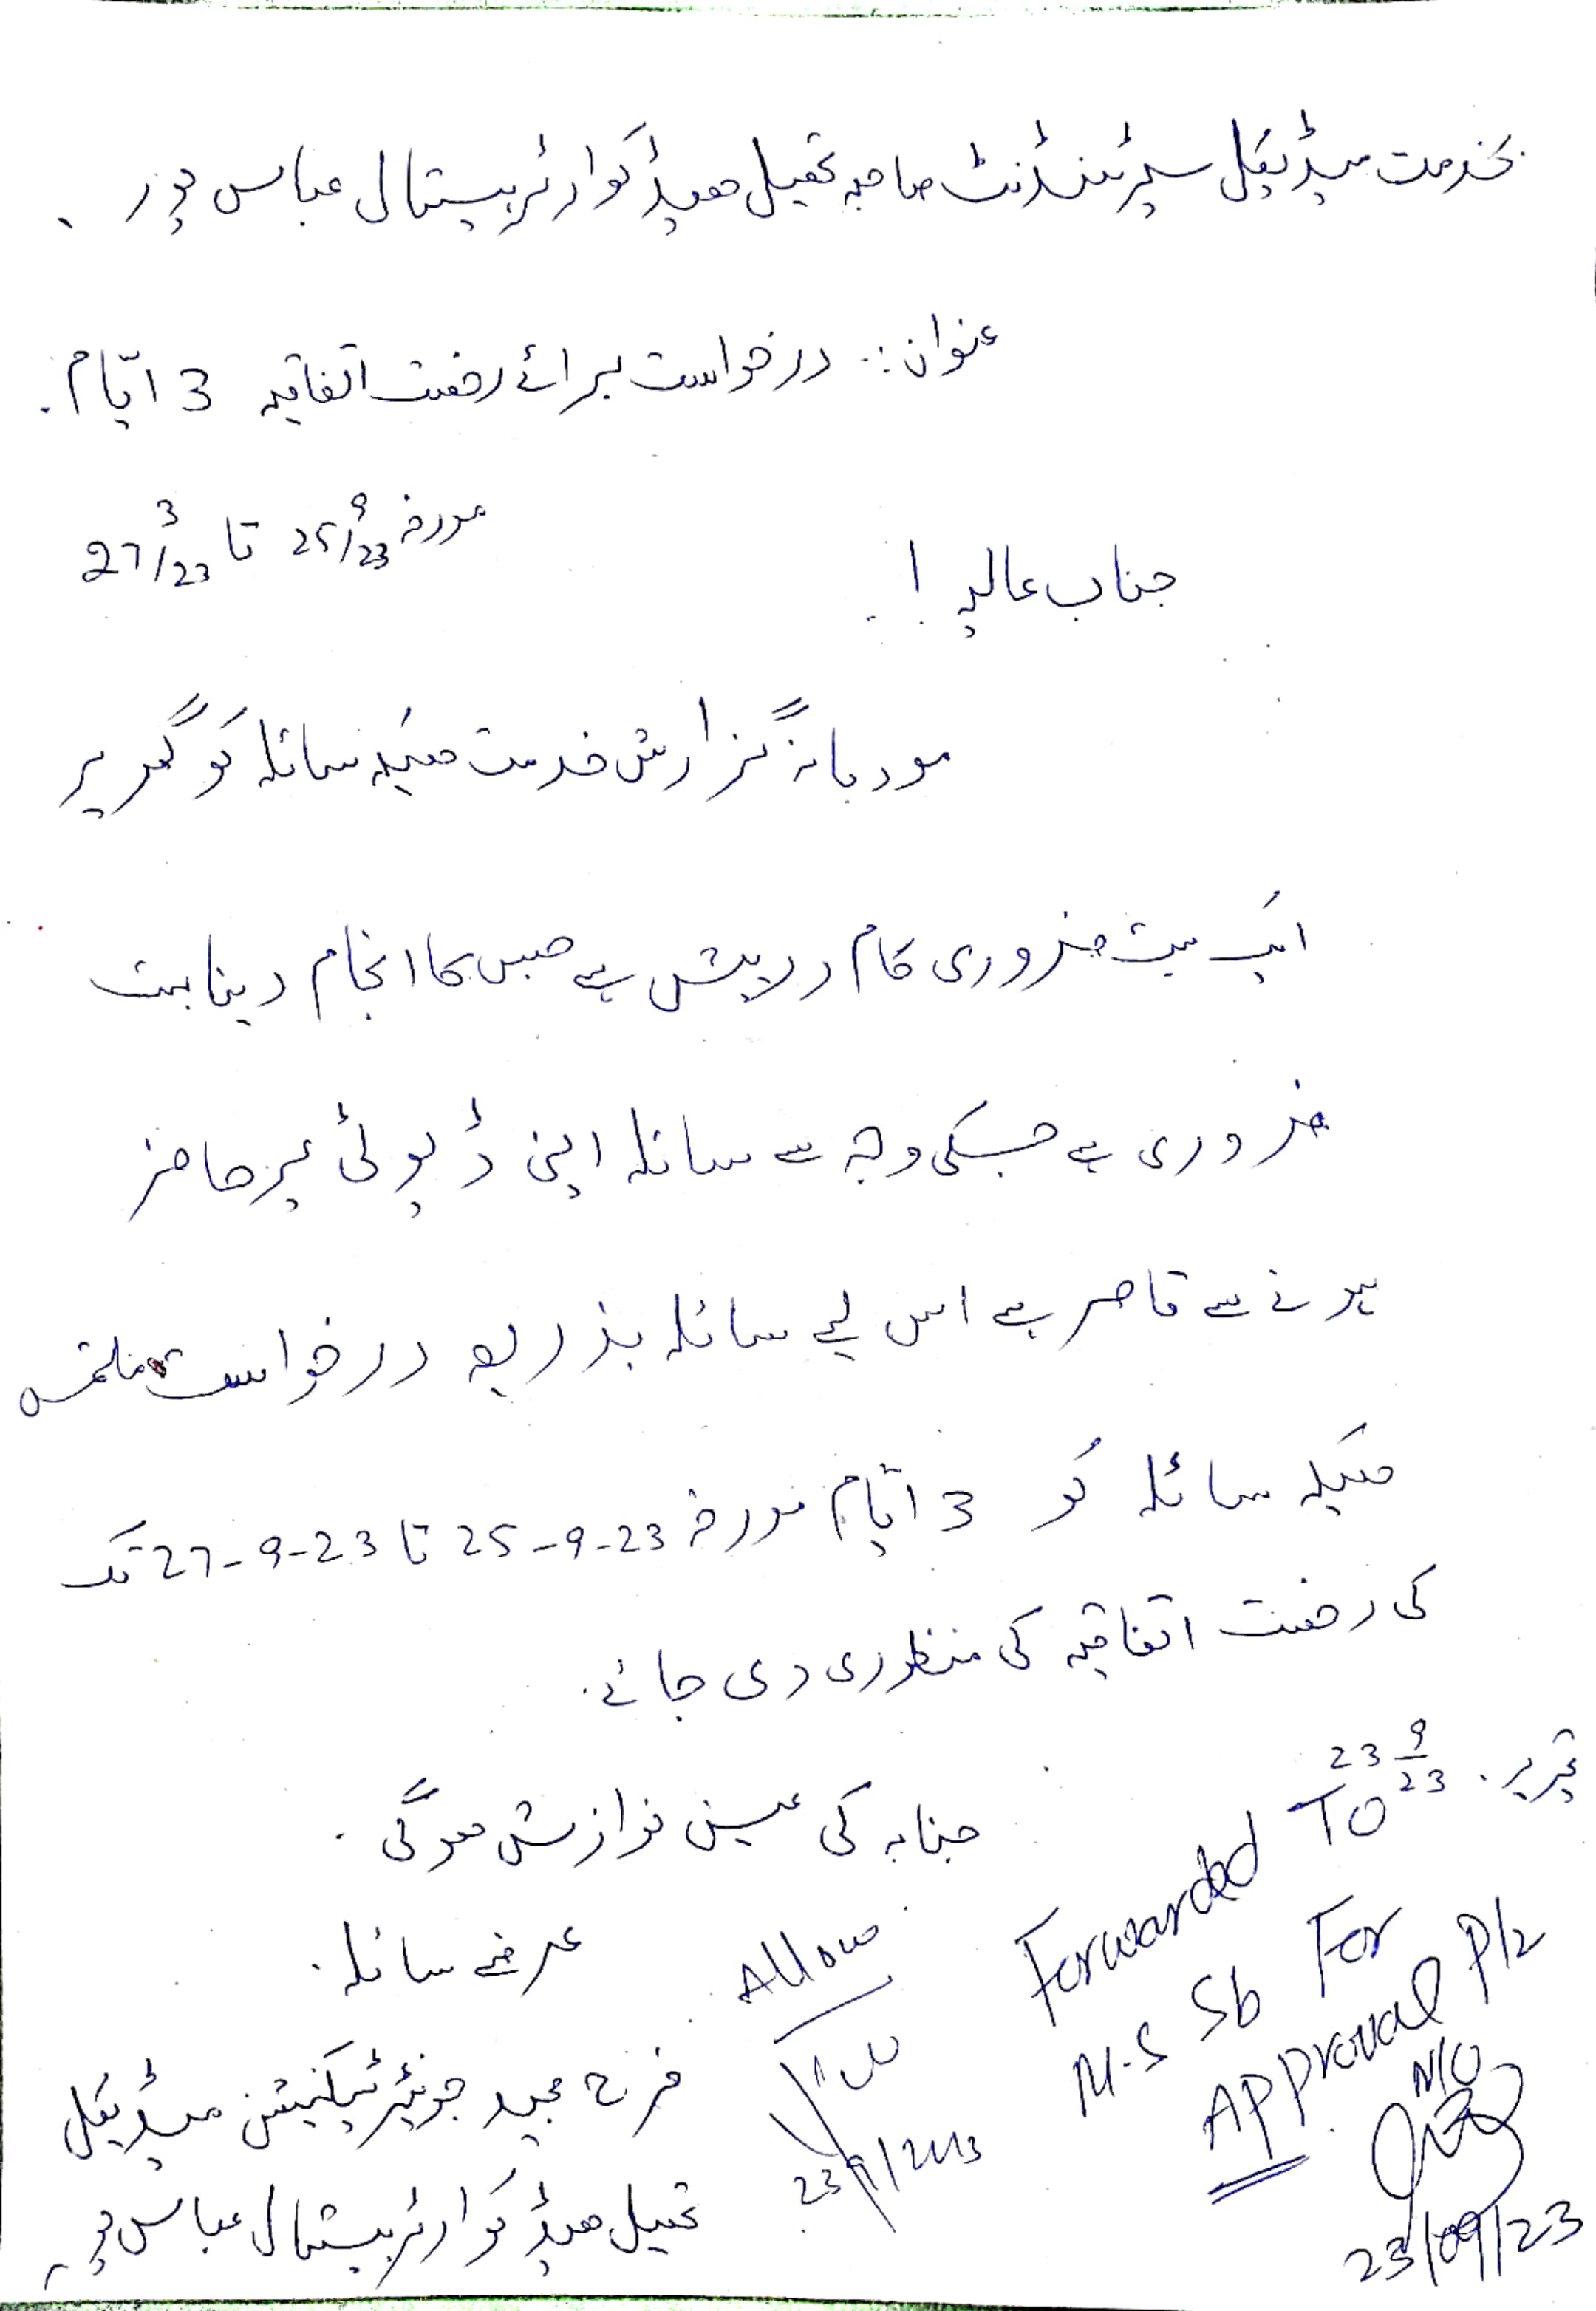 بخدمت میڈیکل سپرنٹنڈنٹ صاحبہ تحصیل ھیڈ کوارٹر ہسپتال عباس پور ۔
عنوان :۔ درخواست برائے رخصت اتفاقیہ 3 ایّام ۔
مورخہ 25/9/23 تا 27/3/23
جناب عالیہ !
مودبانہ گزارش خدمت ھیکہ سائلہ کو گھر پر
ایک بہت ضروری کام درپیش ہے جس کا انجام دینا بہت
ضروری ہے جسکی وجہ سے سائلہ اپنی ڈیوٹی پر حاضر
ہونے سے قاصر ہے اس لیے سائلہ بذریعہ درخواست ملتمس
ھیکہ سائلہ کو 3 ایّام مورخہ 25-9-23 تا 27-9-23 تک
کی رخصت اتفاقیہ کی منظوری دی جائے ۔
تحریر ۔ 23 9/23
جنابہ کی عین نوازش ھوگی ۔
عرضے سائلہ ۔
فرح مجید جونیئر ٹیکنیشن میڈیکل
تحصیل ھیڈ کوارٹر ہسپتال عباس پور ۔
Allow
23/9/2023
Forwarded To
M.S Sb For
Approval Plz
M/O
23/09/23